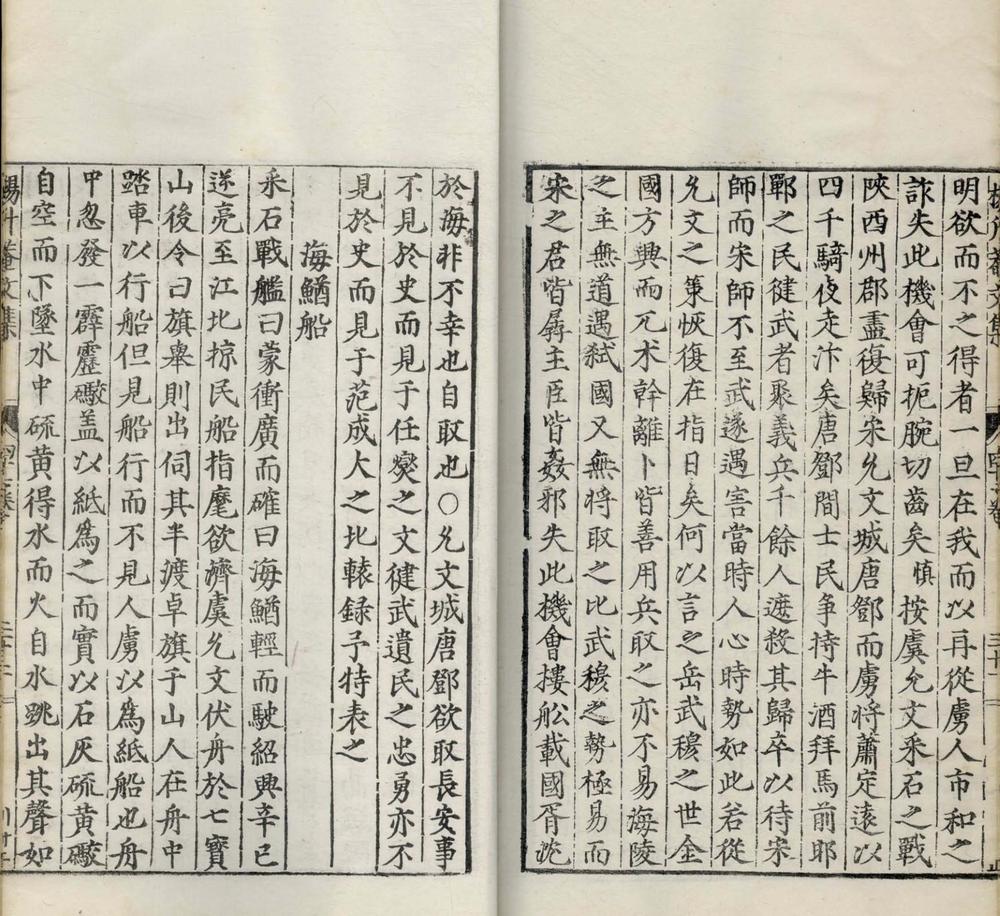 明欲而不之得者一旦在我而以再從虜人市和之
詐失此機會可扼腕切齒矣慎按虞允文采石之戰
陝西州郡盡復歸宋允文城唐鄧而虜將蕭定遠以
四千騎夜走汴矣唐鄧間士民爭持牛酒拜馬前耶
鄲之民徤武者聚義兵千餘人遮殺其歸卒以待宋
師而宋師不至武遂遇害當時人心時勢如此若從
允文之策恢復在指日矣何以言之岳武穆之世金
國方興而兀术幹離卜皆善用兵取之亦不易海陵
之主無道遇弑國又無将取之比武穆之勢極易而
宋之君皆孱主臣皆姦邪失此機會摟舩載國胥沈
於海非不幸也自取也○允文城唐鄧欲取長安事
不見於史而見于任燮之文徤武遺民之忠勇亦不
見於史而見于范成大之比轅録予特表之
海鰌船
采石戰艦曰蒙衝廣而確曰海鰌輕而駛紹興辛巳
逆亮至江北掠民船指麾欲濟虞允文伏舟於七寶
山後令曰旗舉則出伺其半渡卓旗于山人在舟中
踏車以行船但見船行而不見人虜以為紙船也舟
中忽發一霹靂礮盖以紙爲之而實以石灰硫黃礮
自空而下墜水中硫黄得水而火自水跳出其聲如